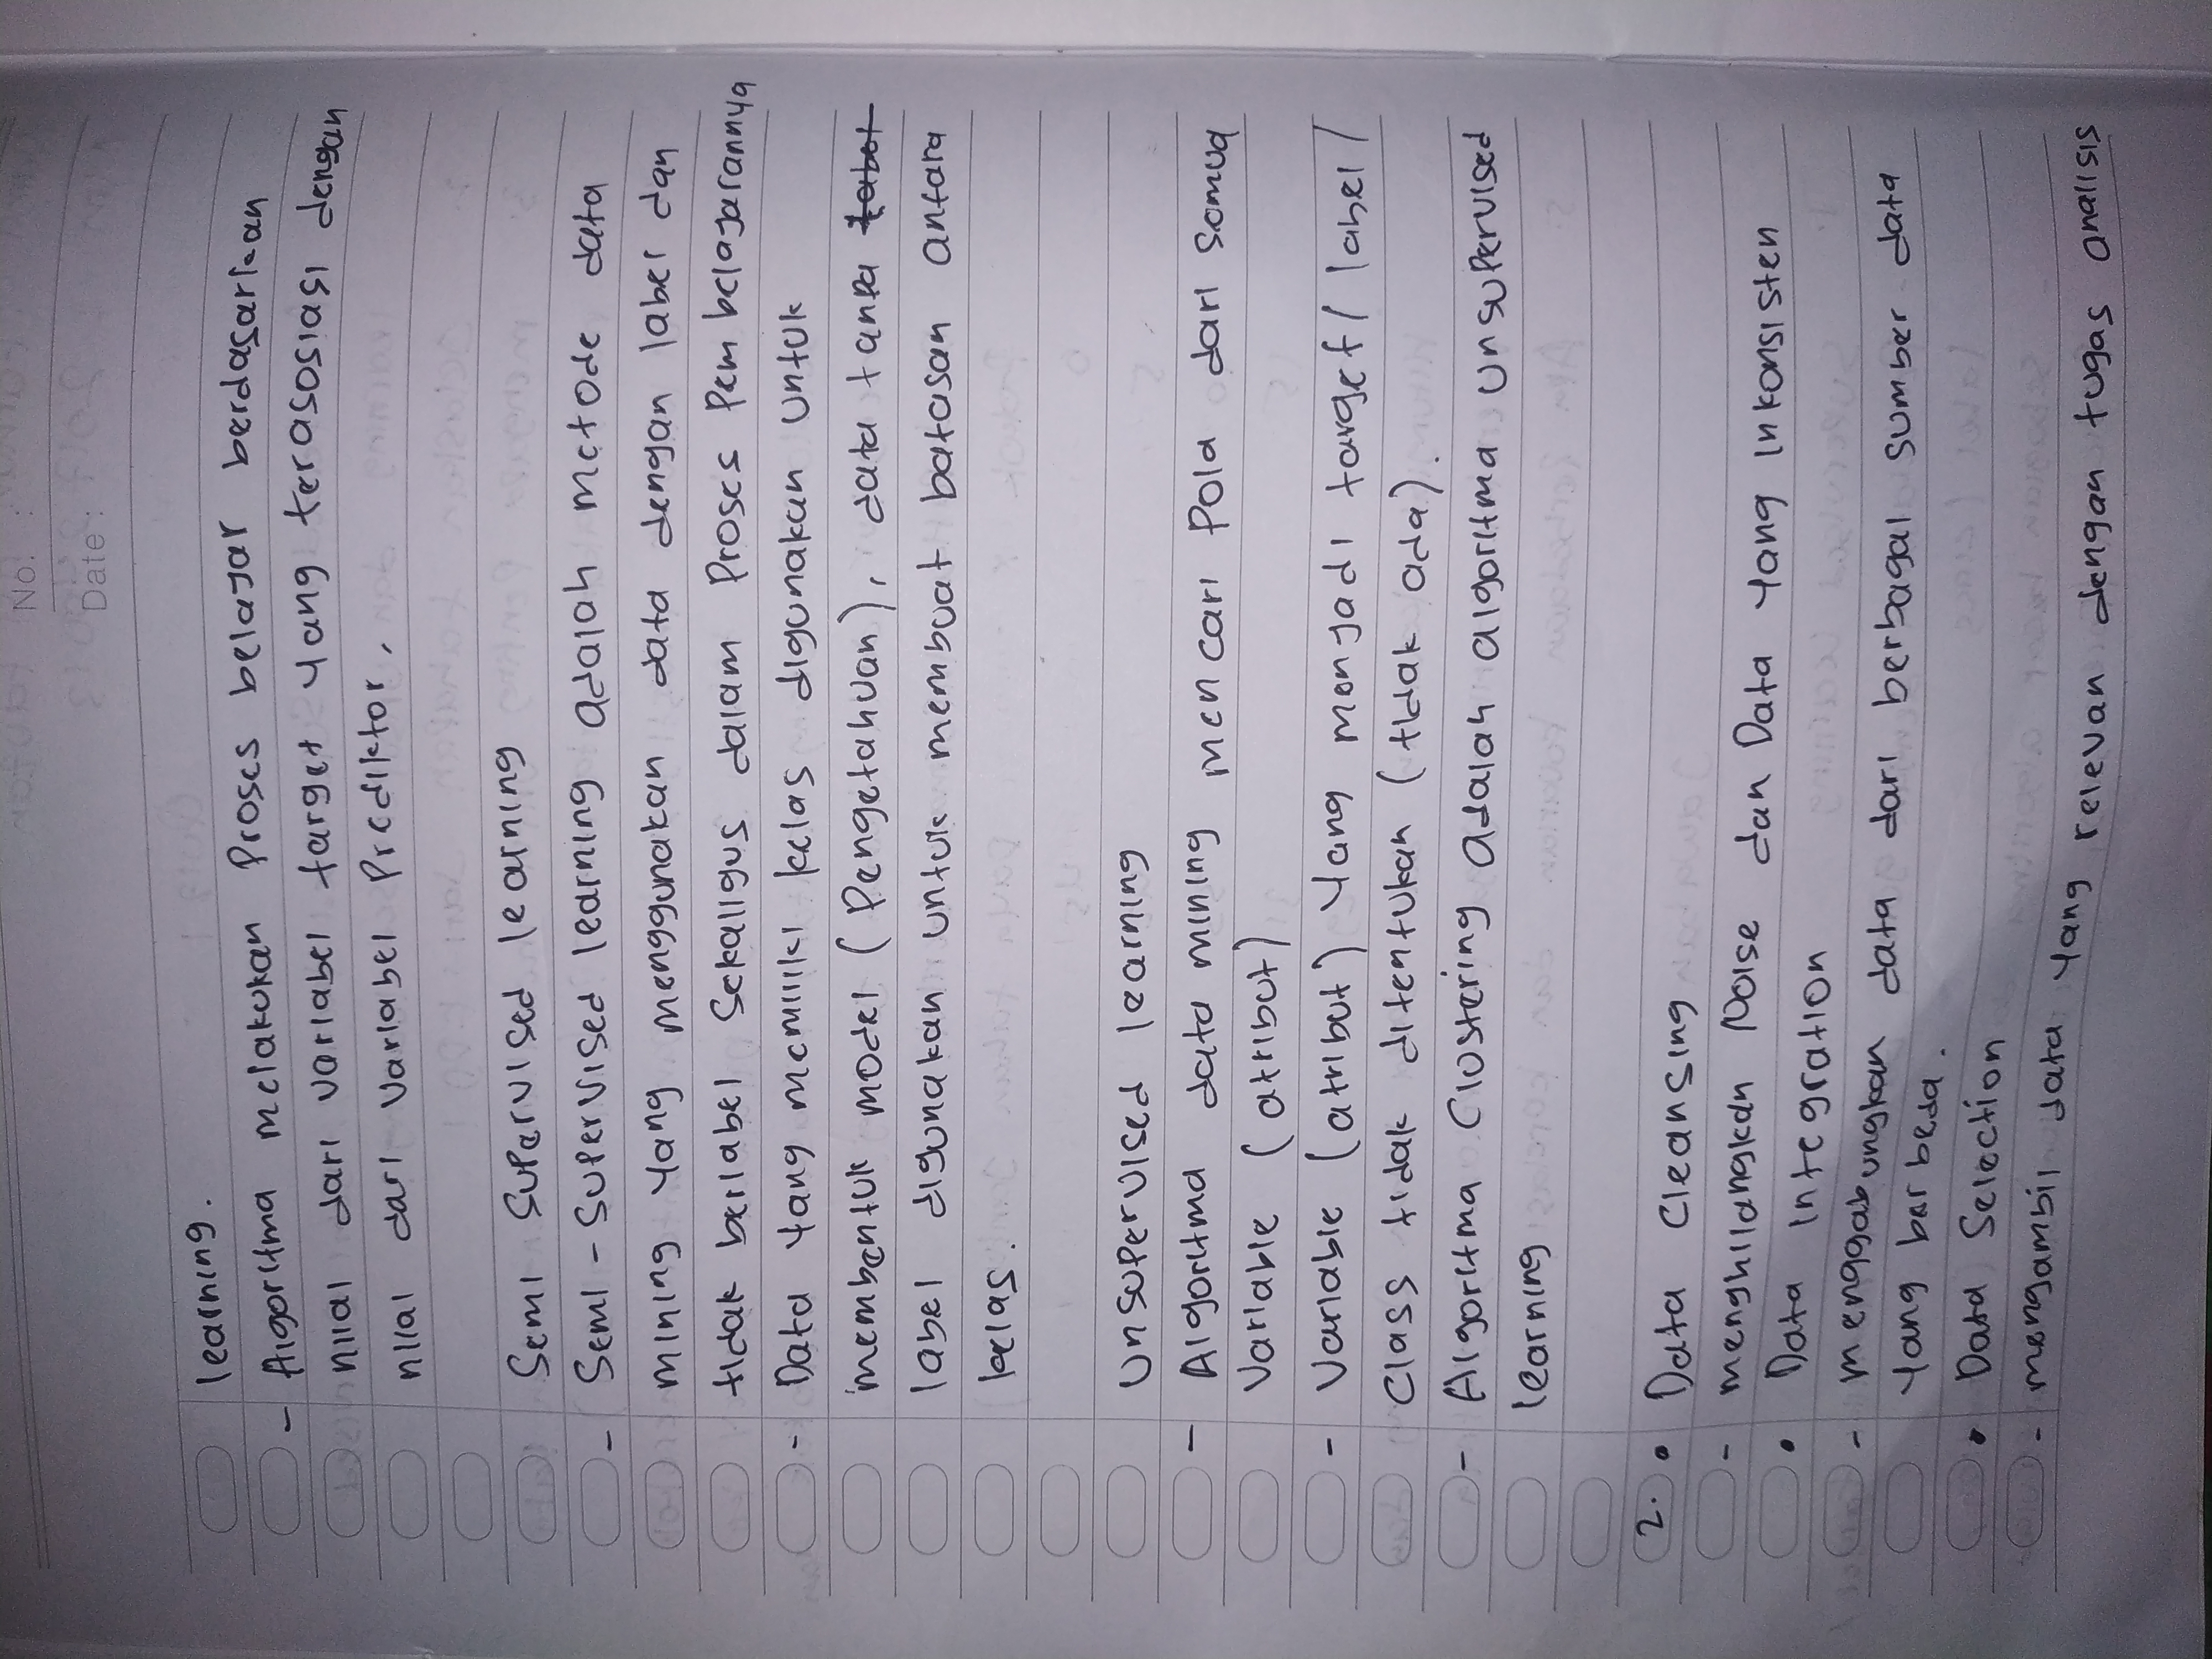 No. :
Date :
learning.
- Algoritma melakukan Proses belajar berdasarkan
nilai dari variabel target yang terasosiasi dengan
nilai dari variabel Prediktor.
Semi Supervised learning
- Semi-Supervised learning adalah metode data
mining yang menggunakan data dengan label dan
tidak berlabel Sekaligus dalam Proses Pembelajarannya
- Data yang memiliki kelas digunakan untuk
membentuk model (Pengetahuan), data tanpa
label digunakan untuk membuat batasan antara
kelas.
Unsupervised learning
- Algoritma data mining mencari Pola dari semua
Variable (atribut)
- Variable (atribut) Yang menjadi target/ label/
Class tidak ditentukan (tidak ada).
- Algoritma Clustering adalah algoritma unsupervised
learning
2. • Data Cleansing
- menghilangkan Noise dan Data yang inkonsisten
• Data integration
- menggabungkan data dari berbagai sumber data
yang berbeda.
• Data Selection
- mengambil data yang relevan dengan tugas analisis